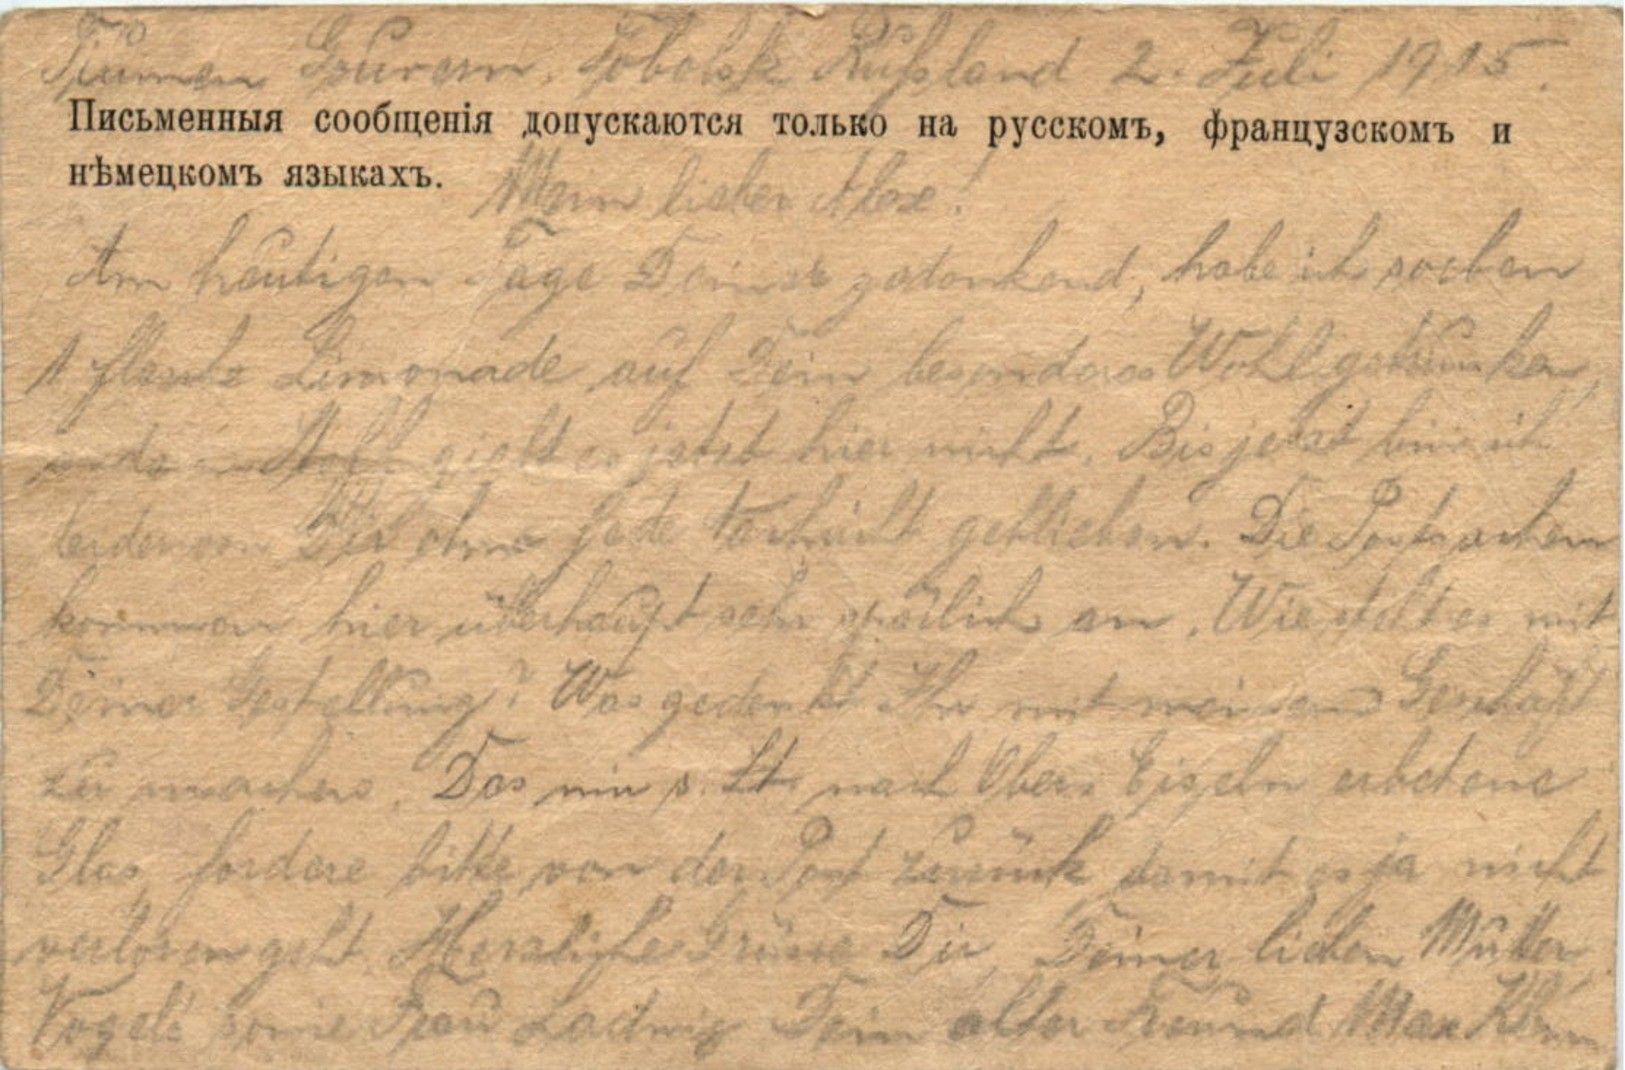 Tiumen Gouvern. Tobolsk Rußland 2. Juli 1915.
Письменныя сообщенія допускаются только на русскомъ, французскомъ и
нѣмецкомъ языкахъ.
Mein lieber Alex!
Am heutigen Tage Deiner gedenkend, habe ich soeben
1 flasche Limonade auf Dein besonderes Wohl getrunken,
giebt es jetzt hier nicht. Bis jetzt bin ich
leider von Dir ohne jede Nachricht geblieben. Die Postsachen
kommen hier überhaupt sehr spärlich an. Wie steht es mit
Deiner Gestellung? Was gedenkt Ihr mit meinem Geschäft
zu machen. Das mir s. Zt. nach Ober Eißeln erbetene
Glas fordere bitte von der Post zurück damit es ja nicht
verloren geht. Herzliche Grüsse Dir, Deiner lieben Mutter,
Vogel's sowie Frau Ladwig Dein alter Freund Max